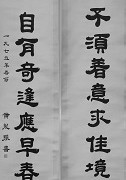 不須着意求佳境
自有奇逢應早春
一九七五年